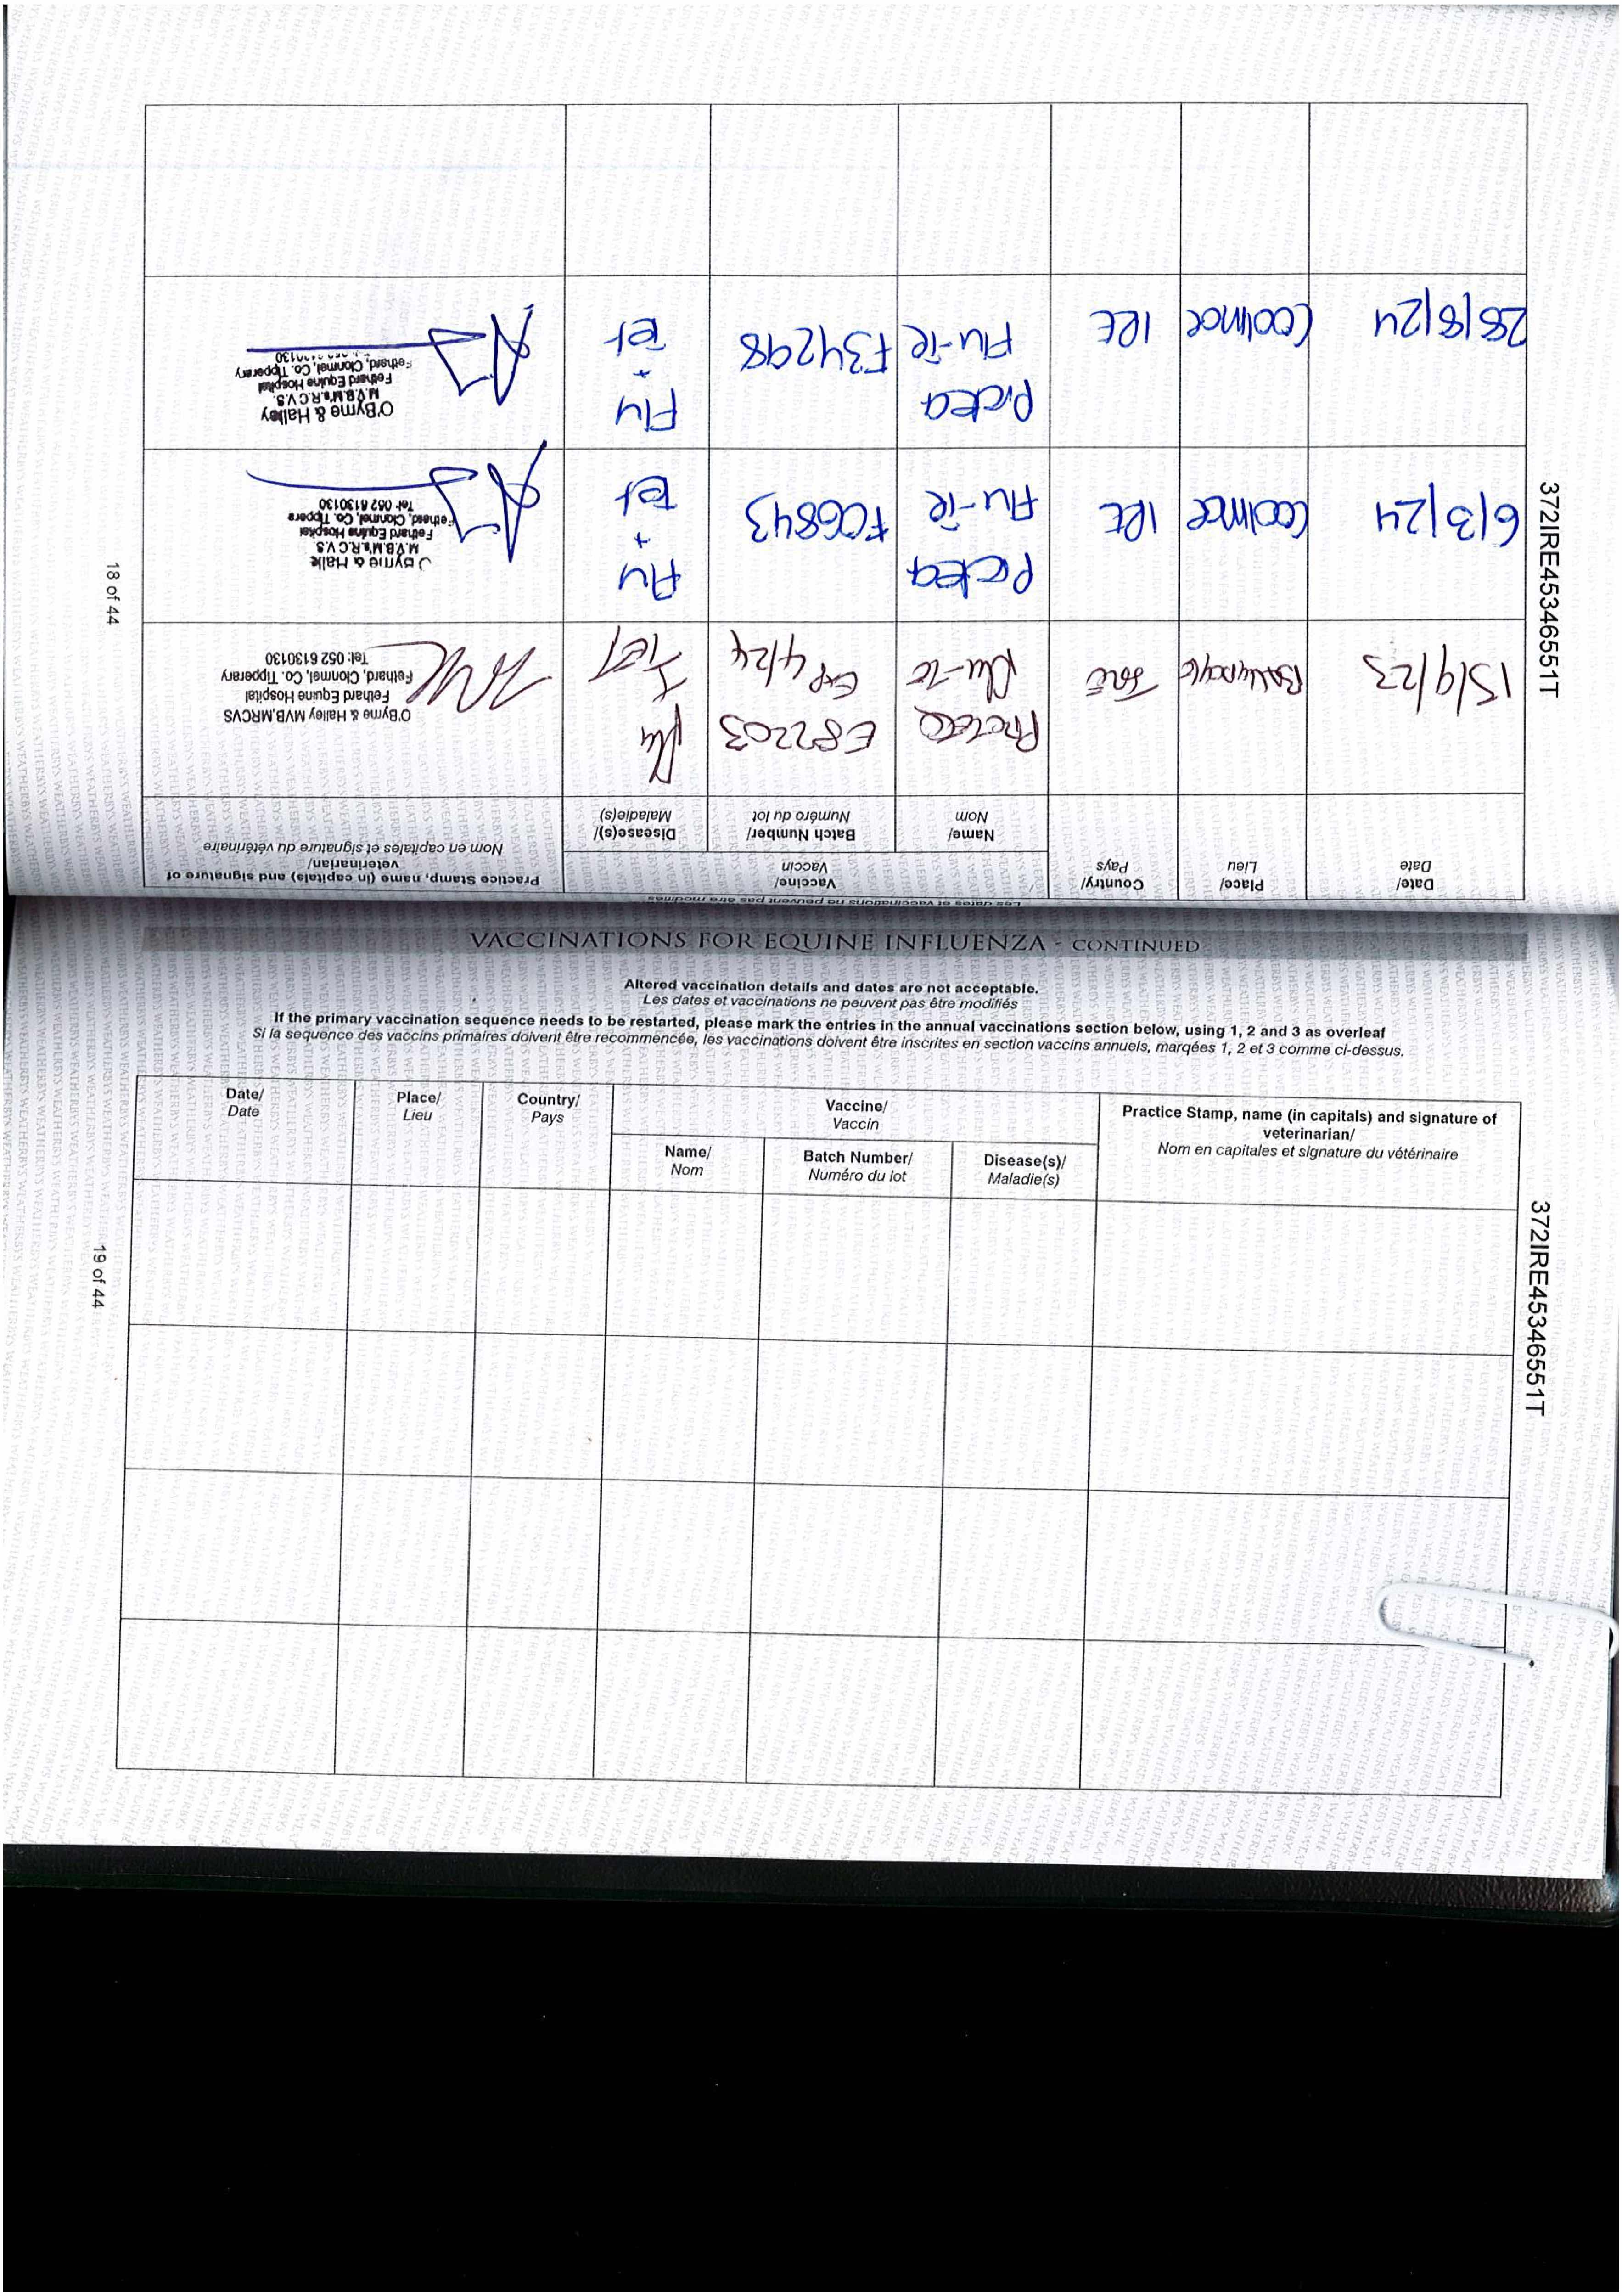 Les dates et vaccinations ne peuvent pas être modifiés
Date/
Date
Place/
Lieu
Country/
Pays
Vaccine/
Vaccin
Name/
Nom
Batch Number/
Numéro du lot
Disease(s)/
Maladie(s)
Practice Stamp, name (in capitals) and signature of
veterinarian/
Nom en capitales et signature du vétérinaire
15/9/23
E82203
Exp 4/24
Flu-Te
Flu
Tet
O'Byrne & Halley MVB,MRCVS
Fethard Equine Hospital
Fethard, Clonmel, Co. Tipperary
Tel: 052 6130130
6/3/24 Coolmore IRE
Flu-Te
FC6843
Flu
+
Tet
Byrne & Halle
M.V.B.M's.R.C.V.S.
Fethard Equine Hospital
Fethard, Clonmel, Co. Tippera
Tel: 052 6130130
28/8/24 Coolmore IRE
Flu-Te
F34298
Flu
+
Tet
O'Byrne & Halley
M.V.B.M's.R.C.V.S.
Fethard Equine Hospital
Fethard, Clonmel, Co. Tipperary
372IRE45346551T
18 of 44
VACCINATIONS FOR EQUINE INFLUENZA - CONTINUED
Altered vaccination details and dates are not acceptable.
Les dates et vaccinations ne peuvent pas être modifiés
If the primary vaccination sequence needs to be restarted, please mark the entries in the annual vaccinations section below, using 1, 2 and 3 as overleaf
Si la sequence des vaccins primaires doivent être recommencée, les vaccinations doivent être inscrites en section vaccins annuels, marqées 1, 2 et 3 comme ci-dessus.
Date/
Date
Place/
Lieu
Country/
Pays
Vaccine/
Vaccin
Name/
Nom
Batch Number/
Numéro du lot
Disease(s)/
Maladie(s)
Practice Stamp, name (in capitals) and signature of
veterinarian/
Nom en capitales et signature du vétérinaire
372IRE45346551T
19 of 44